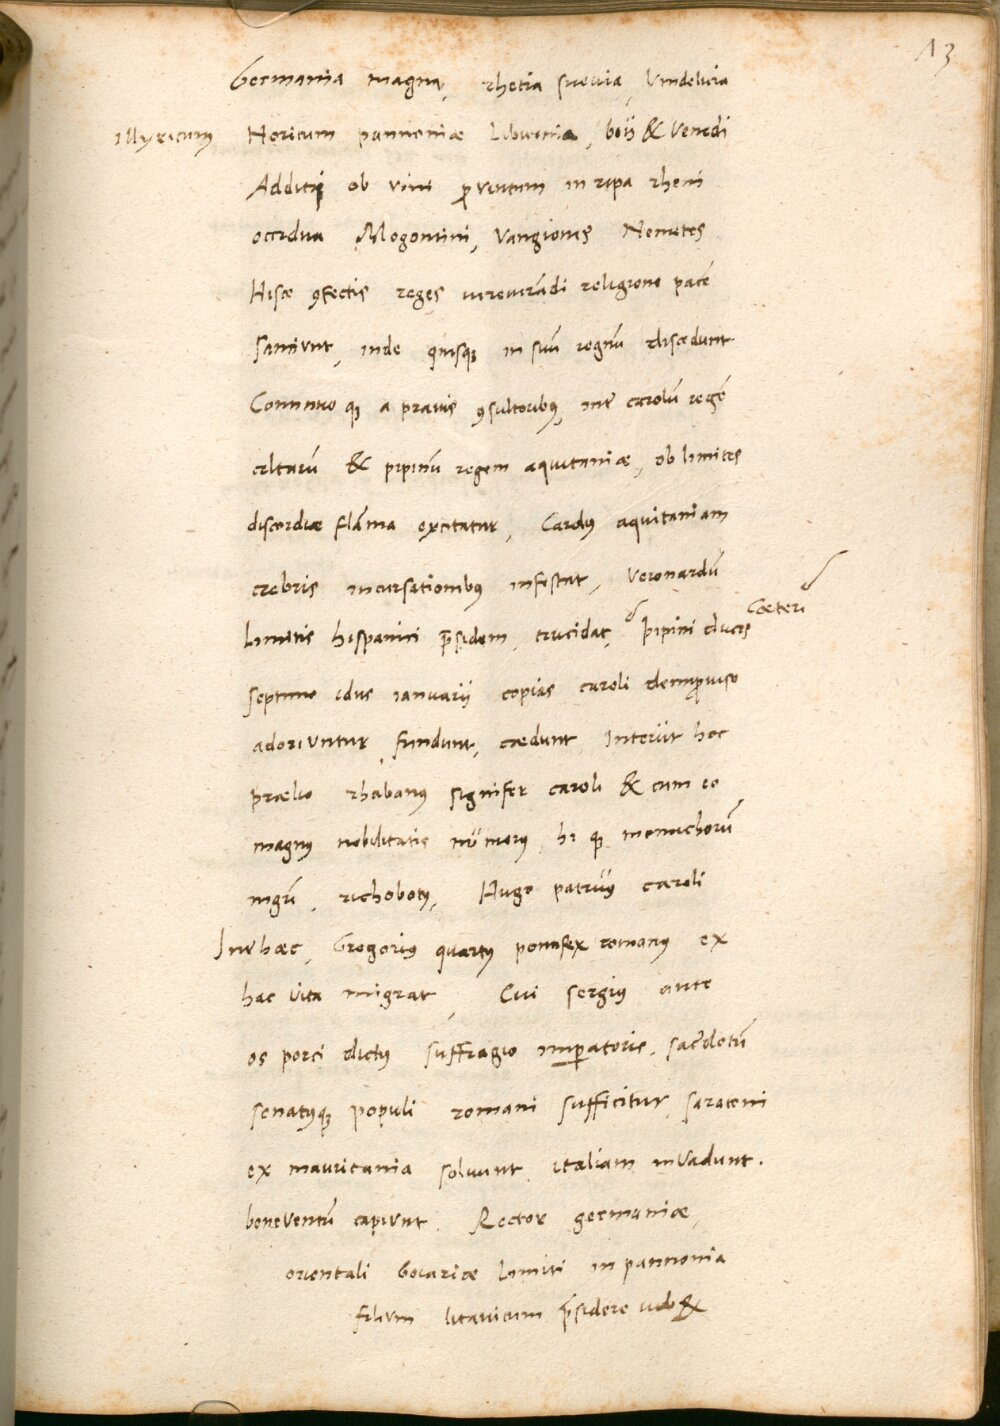 13
Germania magna, rhetia sueuia, Vindelicia
illyricum Noricum pannoniæ Liburnia, boij & Venedi
Additi ob vini ꝓventum in ripa rheni
occidua Mogontini, Vangiones Nemetes
Hisce ꝯfectis reges iureiurãdi religione pacẽ
sanciunt, inde quisqȝ in suũ regnũ discedunt
Continuo qȝ a prauis ꝯsultoribꝰ, inter carolũ regẽ
celtarũ & pipinũ regem aquitaniæ, ob limites
discordiæ flãma excitatur, Carolꝰ aquitaniam
crebris incursationibꝰ infestat, Veronardũ
Limitis hispanici p̃sidem, trucidat, pipini duces
Cæteri
septimo idus ianuarij copias caroli deimꝓuiso
adoriuntur, fundunt, cædunt, Interijt hoc
prælio rhabanꝰ signifer caroli & cum eo
magnꝰ nobilitatis nũmerꝰ, hi qȝ monachorũ
mgr̃i, richobotꝰ, Hugo patruꝰ caroli
Inter hæc, Gregoriꝰ quartꝰ pontifex romanꝰ ex
hac vita migrat, Cui sergiꝰ ante
os porci dictꝰ suffragio imꝑatoris, sacerdotũ
senatꝰqȝ populi romani sufficitur, saraceni
ex mauritania soluunt italiam inVadunt.
beneventũ capiunt. Rector germaniæ,
orientali boiariæ limiti in pannonia
filium litavicum p̃sidere iubet